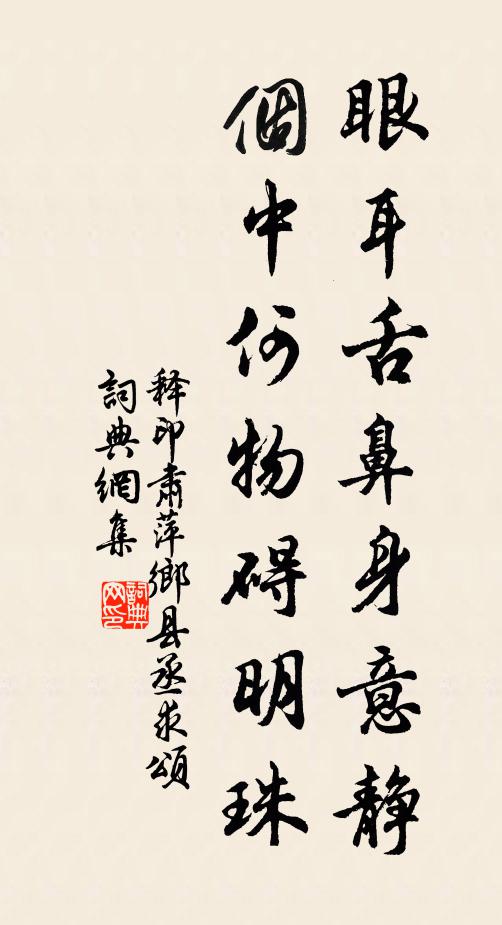 眼耳舌鼻身意静
個中何物碍明珠
释印肃萍鄉县丞求頌
詞典網集
詞典
网印